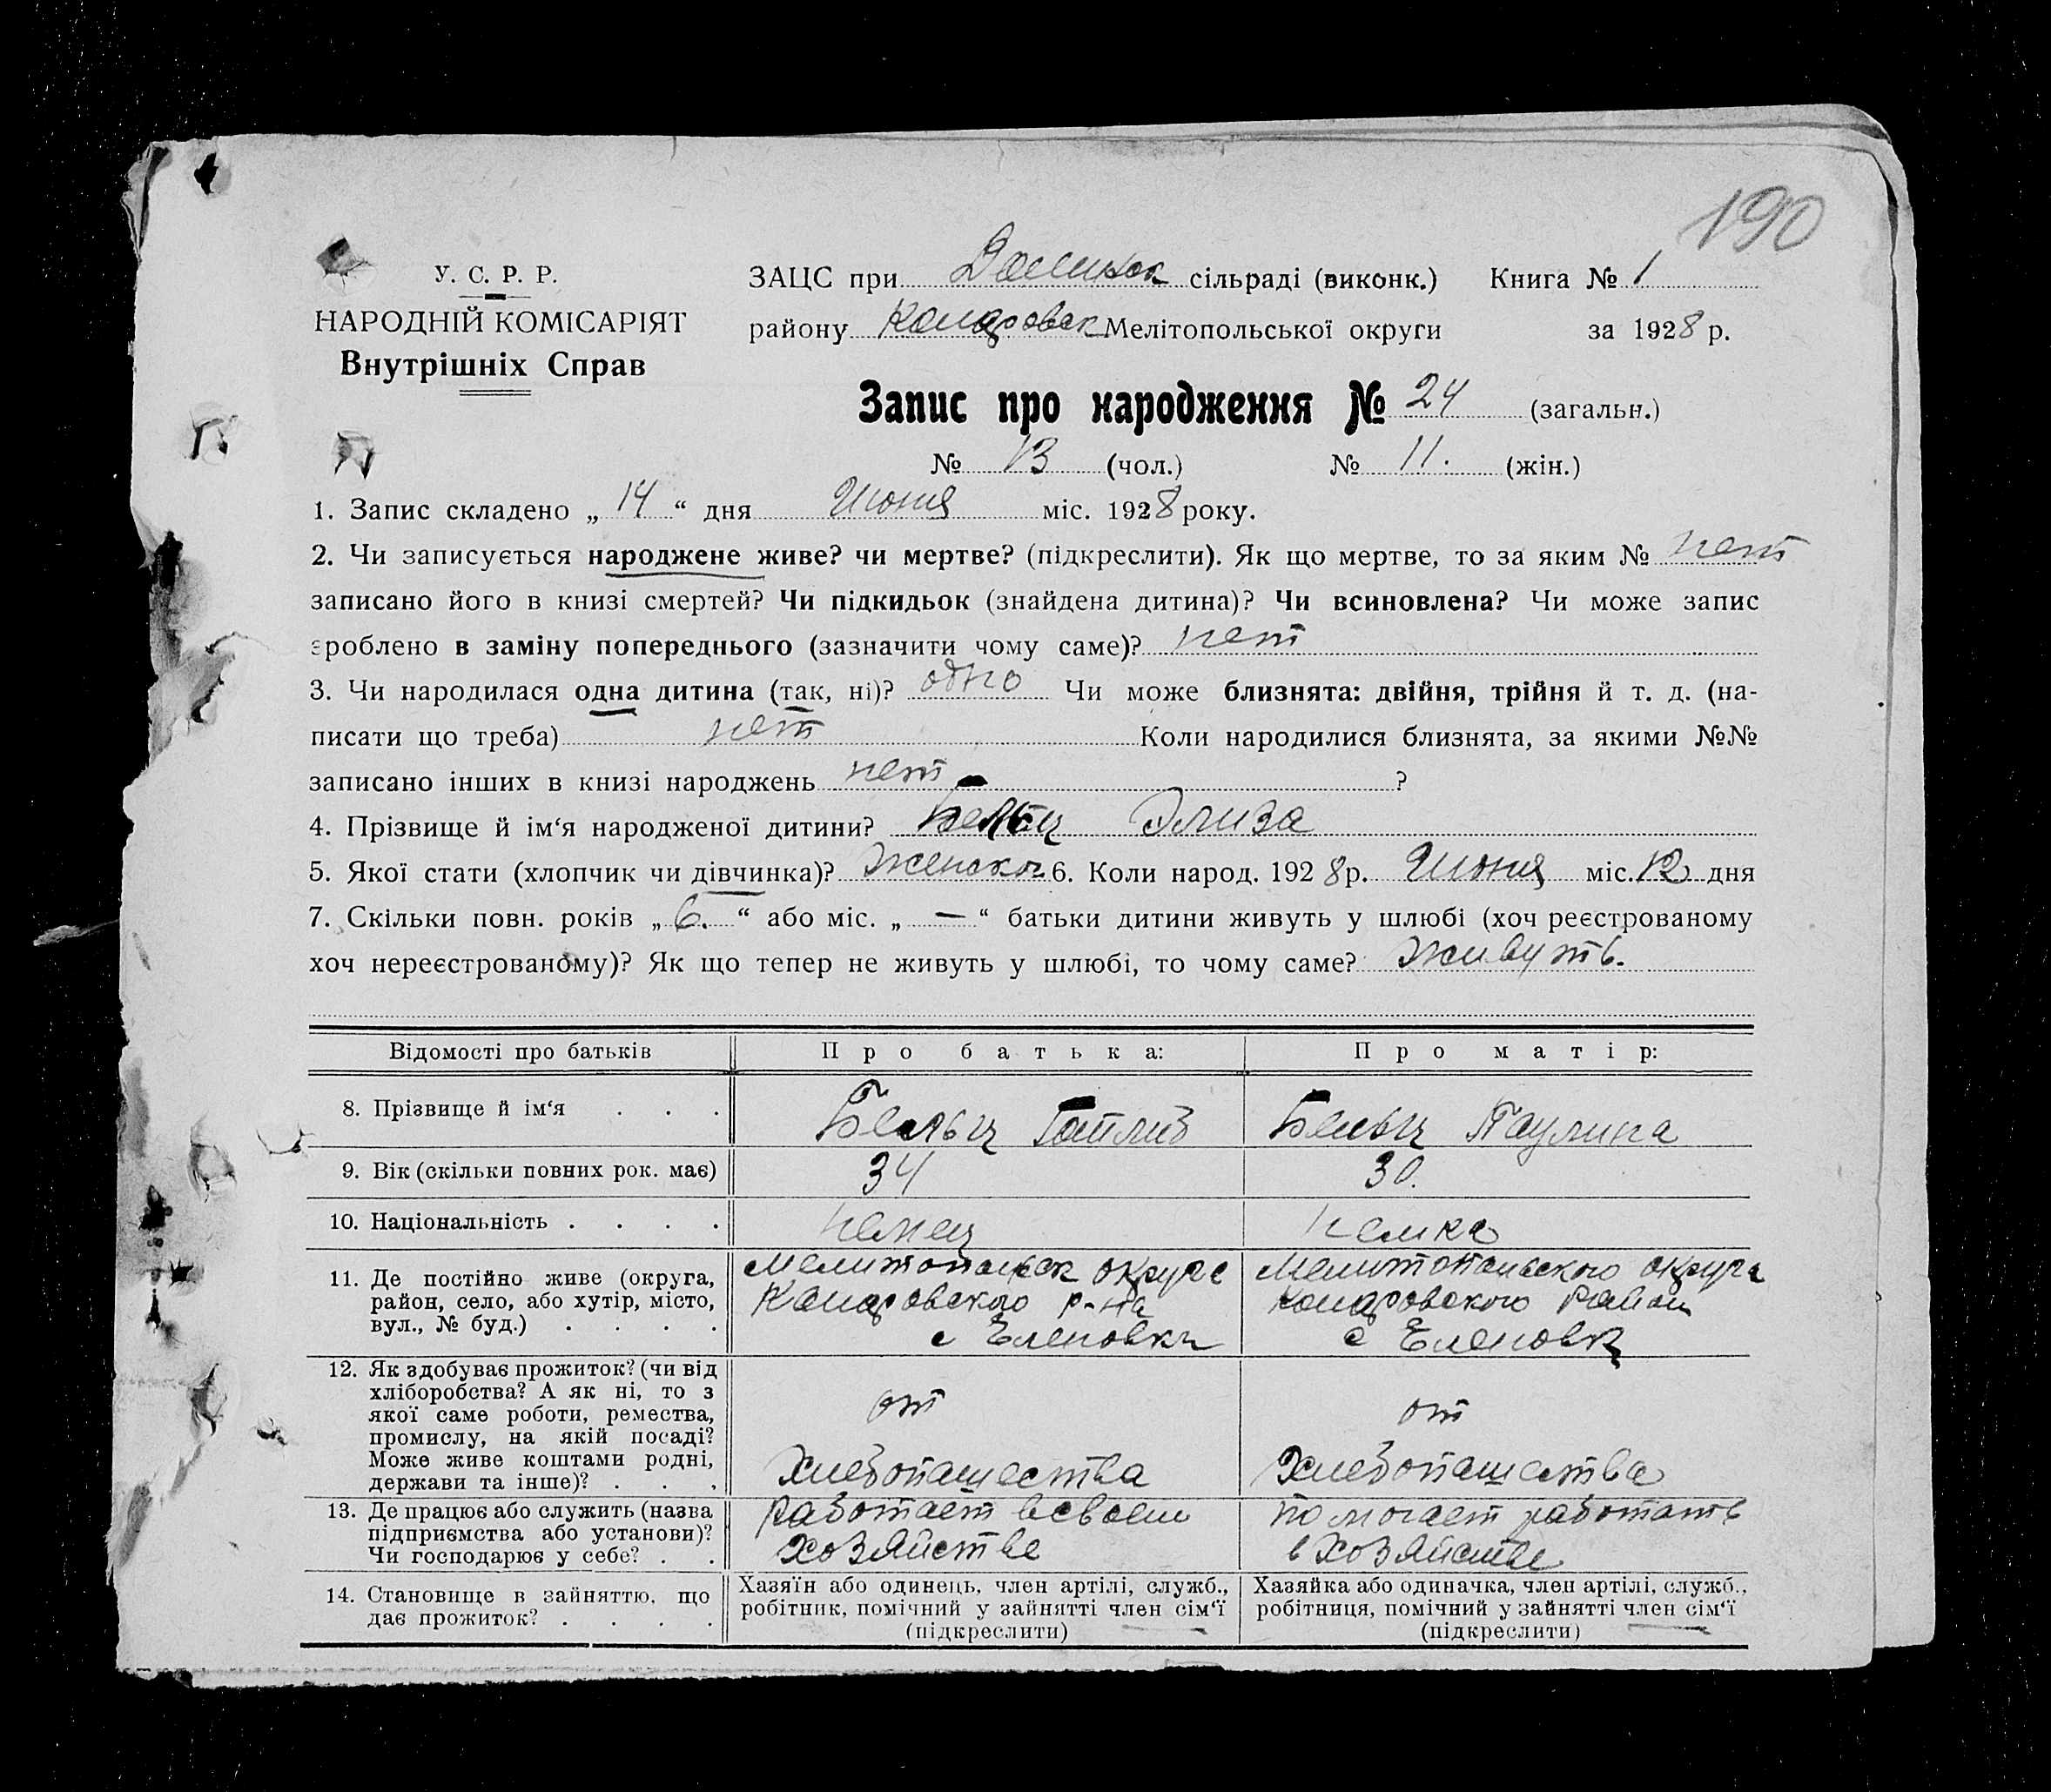 190
У. С. Р. Р.
НАРОДНІЙ КОМІСАРІЯТ
Внутрішніх Справ
ЗАЦС при сільраді (виконк.) Книга № 1
району Мелітопольської округи за 1928 р.
Запис про народження № 24 (загальн.)
№ 13 (чол.) № 11. (жін.)
1. Запис складено „ 14 “ дня Июня міс. 1928 року.
2. Чи записується народжене живе? чи мертве? (підкреслити). Як що мертве, то за яким № нет
записано його в книзі смертей? Чи підкидьок (знайдена дитина)? Чи всиновлена? Чи може запис
зроблено в заміну попереднього (зазначити чому саме)? нет
3. Чи народилася одна дитина (так, ні)? одно Чи може близнята: двійня, трійня й т. д. (на-
писати що треба) нет Коли народилися близнята, за якими №№
записано інших в книзі народжень нет ?
4. Прізвище й ім‘я народженої дитини? Бельц Элиза
5. Якої стати (хлопчик чи дівчинка)? Женской 6. Коли народ. 1928 р. Июня міс. 12 дня
7. Скільки повн. років „ 6. “ або міс. „ — “ батьки дитини живуть у шлюбі (хоч реєстрованому
хоч нереєстрованому)? Як що тепер не живуть у шлюбі, то чому саме? Живуть.
Відомості про батьків Про батька: Про матір:
8. Прізвище й ім‘я . . . Бельц Готлиб Бельц Паулина
9. Вік (скільки повних рок. має) 34 30.
10. Національність . . . . немец немка
11. Де постійно живе (округа, Мелитопольск округе Мелитопольского округа
район, село, або хутір, місто, р-на район
вул., № буд.) . . . . с Еленовки с Еленовк
12. Як здобуває прожиток? (чи від
хліборобства? А як ні, то з
якої саме роботи, ремества, от от
промислу, на якій посаді?
Може живе коштами родні, Хлебопашества Хлебопашества
держави та інше)? . . .
13. Де працює або служить (назва работает в своем помогает работать
підприємства або установи)?
Чи господарює у себе? . . хозяйстве в хозяйстве
14. Становище в зайняттю, що Хазяїн або одинець, член артілі, служб., Хазяйка або одиначка, член артілі, служб.,
дає прожиток? . . . . робітник, помічний у зайнятті член сім‘ї робітниця, помічний у зайнятті член сім‘ї
(підкреслити) (підкреслити)